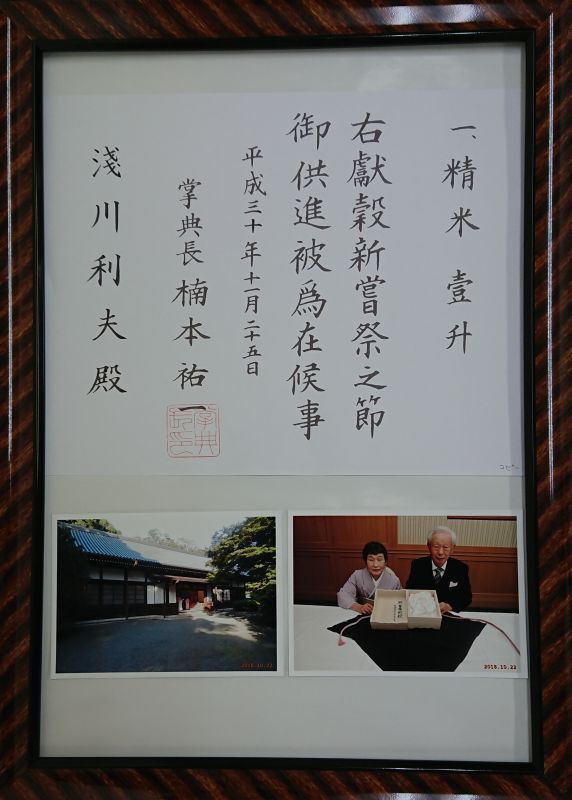 一、精米 壹升
右獻穀新嘗祭之節
御供進被爲在候事
平成三十年十一月二十五日
掌典長 楠本祐一
淺川利夫殿
コピー
2018.10.22
2018.10.22